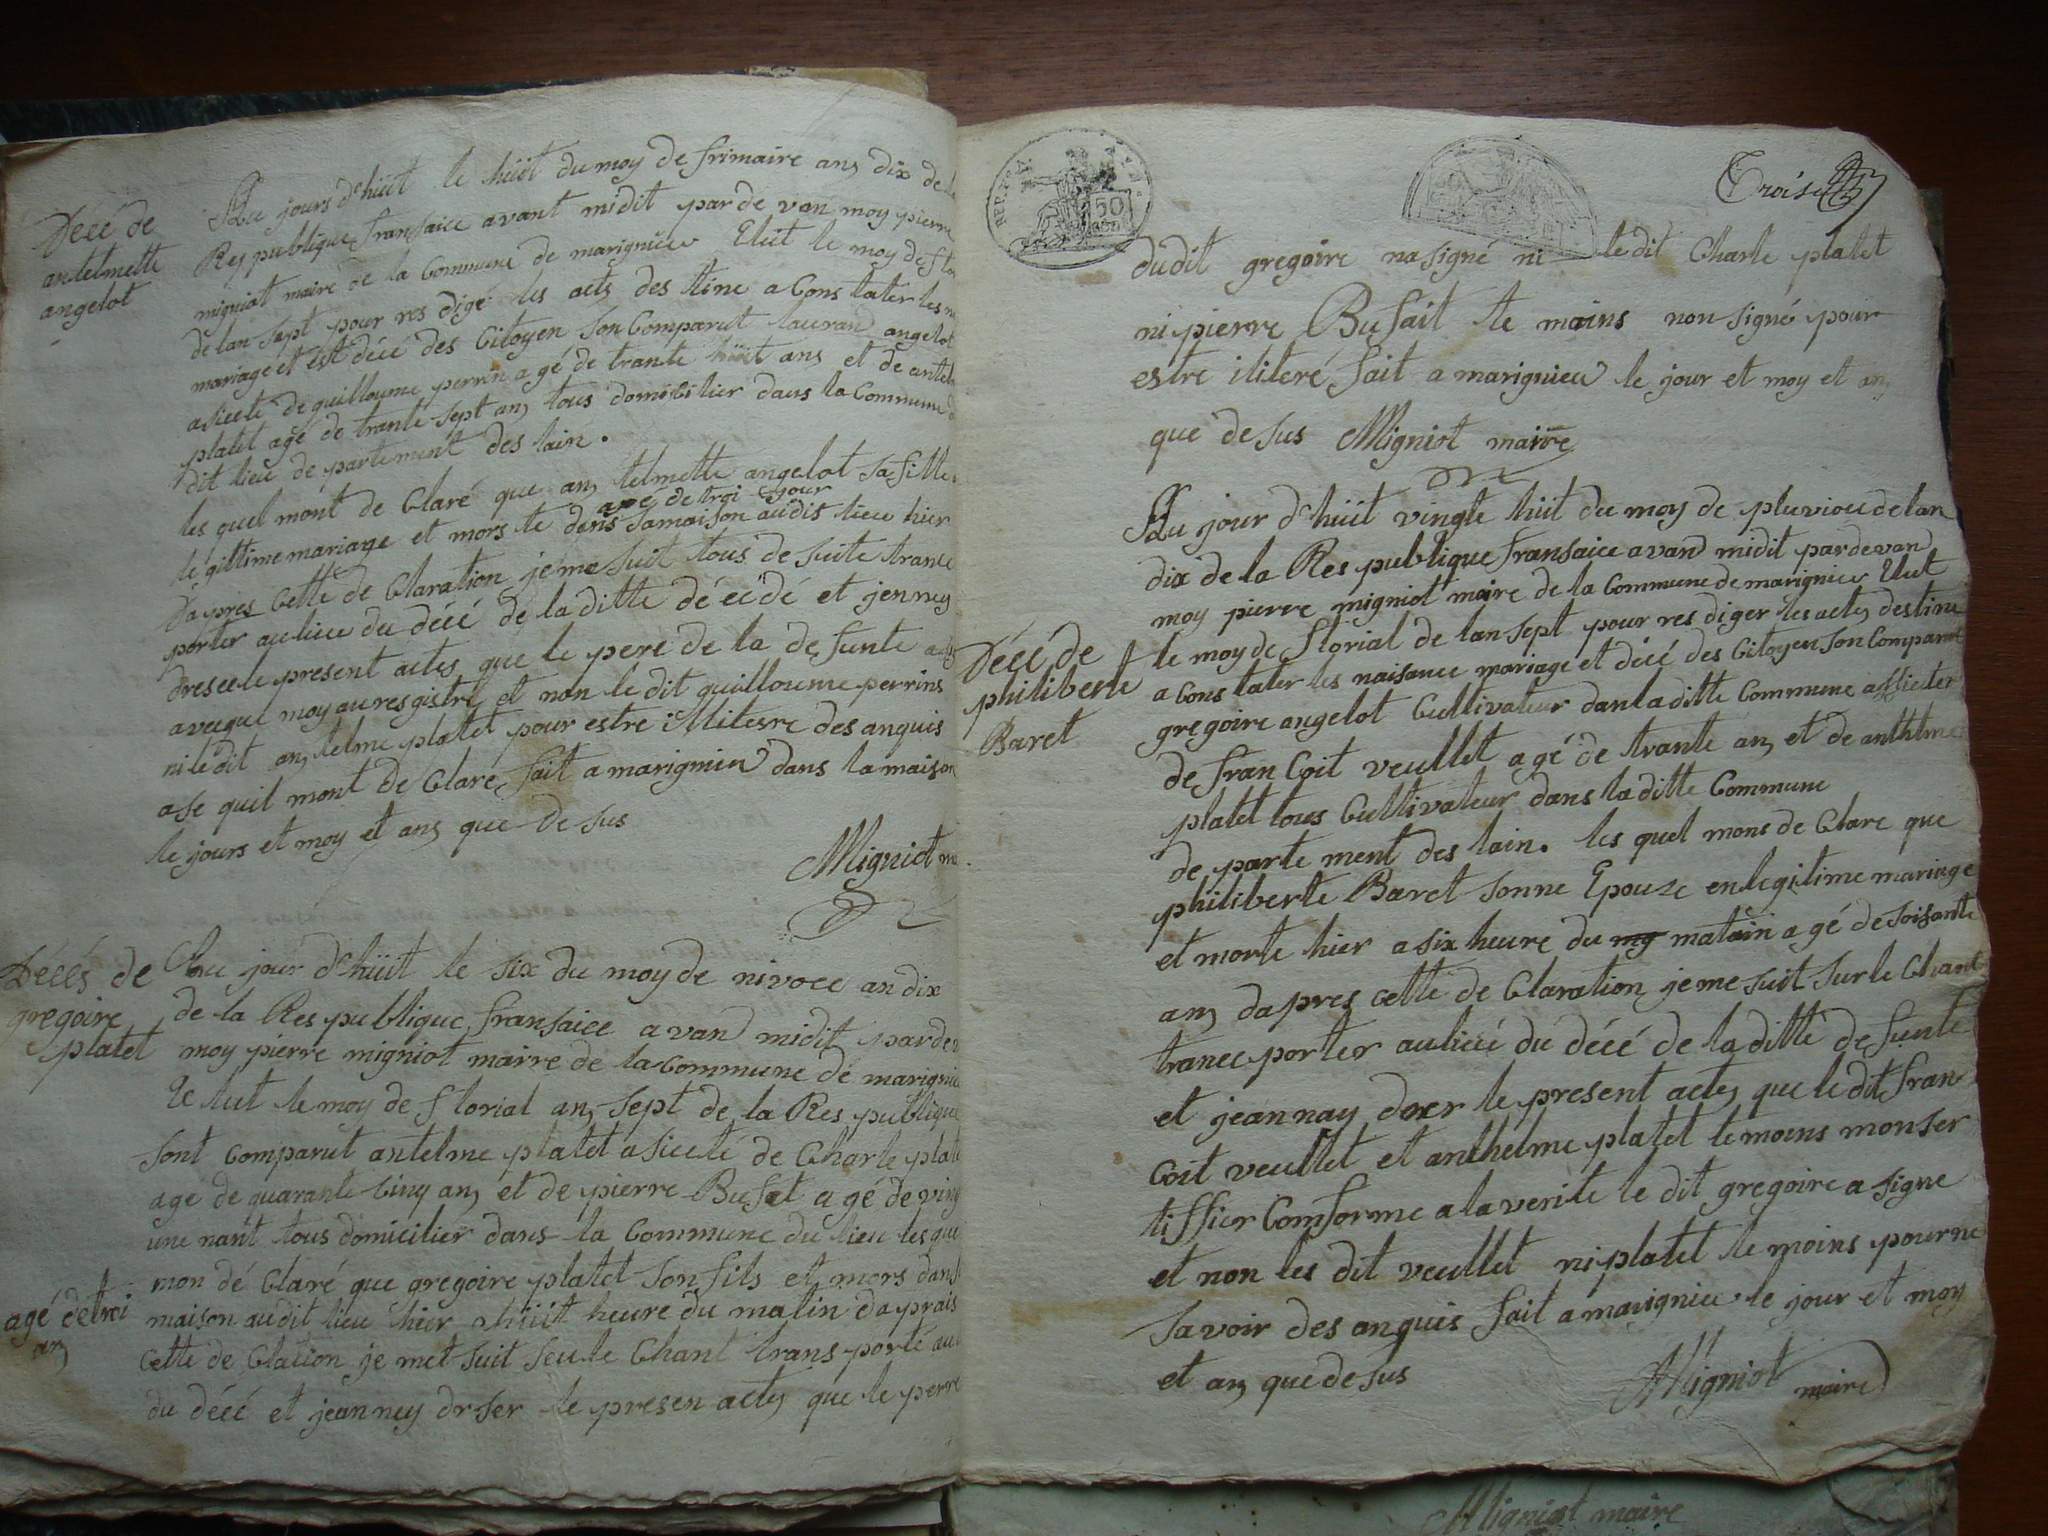 Decé de
antelmette
angelot
Au jours d'huit le huit du moy de frimaire an dix de la
Respublique fransaice avant midit par de van moy pierre
migniot maire de la Commune de marignieu Elut le moy de flo
de lan sept pour res digé les acts des tine a Constater les n
mariage et est décé des Citoyen Son Comparut lauran angelot
asisté de guilloume perrin agé de trante huit ans et de antel
platet agé de trante sept an tous domicilier dans la Commune d
dit lieu de partement des lain.
les quel mont de Claré que an telmette angelot sa fille
agé de troi jour
le gittime mariage et mors te dans sa maison au dis lieu hier
dapres cette de Claration je me suit tous de suite trance
porter au lieu du décé de la ditte décédé et jenney
dresee le present actes que le pere de la de funte a
aveque moy au resgistre et non le dit guilloume perrins
ni le dit an telme platet pour estre illitesre des anquis
a se quil mont de Claré fait a marignieu dans la maison
le jours et moy et an que de sus
Migniot m
Décés de
gregoire
platet
Au jour d'huit le six du moy de nivoce an dix
de la Res publique fransaice avan midit par de v
moy pierre migniot mairre de la Commune de marignie
Elut le moy de florial an sept de la Res publique
sont comparut antelme platet asisté de Charle plate
agé de quarante cinq an et de pierre Bufet agé de ving
une nant tous domicilier dans la Commune du lieu les que
mon dé Claré que gregoire platet son fils et mors dans
agé de troi
an
maison au dit lieu hier a huit heure du matin daprais
cette de Clation je met suit seule Chant trans porté au
du décé et jeanney drser le presen actes que le perre
REP. FRA.
50
Troise
du dit gregoire na signé ni le dit Charle platet
ni pierre Bufait te mains non signé pour
estre iliteré fait a marignieu le jour et moy et an
que de sus Migniot mairre
Décé de
philiberte
Baret
Au jour d'huit vingte huit du moy de pluviou de lan
dix de la Res publique fransaice avand midit par de van
moy pierre migniot maire de la Commune de marignieu Elut
le moy de florial de lan sept pour res diger les actes des tine
a Cons tater les naisance mariage et décé des Citoyen son Comparut
gregoire angelot Cultivateur dan la ditte Commune assister
de fran Coit veullet agé de trante an et de anthelme
platet tous Cultivateur dans la ditte Commune
de parte ment des lain. les quel mons de Clare que
philiberte Baret sonne Epouse en legitime mariage
et morte hier a six heure du my matain agé de soisante
an dapres cette de Claration je me suit sur le Chant
trance porter au lieu du décé de la ditte de funte
et jeannay dreser le present actes que le dit fran
coit veullet et anthelme platet temoins mon ser
tiffier Comforme a la verite le dit gregoire a signe
et non les dit veullet ni platet te moins pour ne
savoir des anquis fait a marignieu le jour et moy
et an que de sus
Migniot maire
Migniot maire